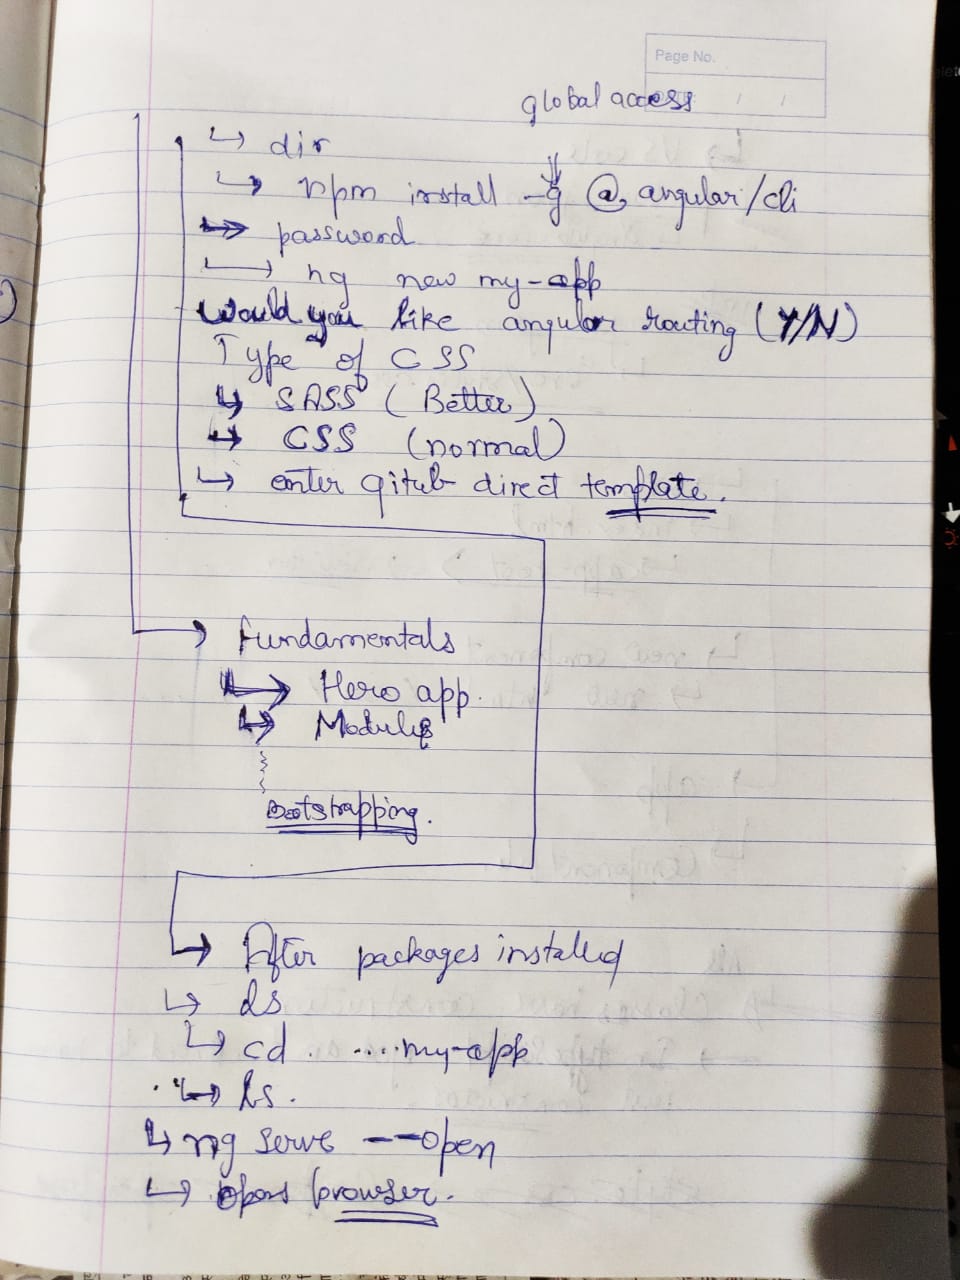 Page No.
global access
↳ dir
↳ npm install -g @angular/cli
↳ password
↳ ng new my-app
Would you like angular routing (Y/N)
Type of CSS
↳ SASS (Better)
↳ CSS (normal)
↳ enter gitub direct template.
Fundamentals
↳ Hero app.
↳ Modules
Bootstrapping.
↳ After packages installed
↳ ls
↳ cd ....my-app
↳ ls.
↳ ng serve --open
↳ opens browser.